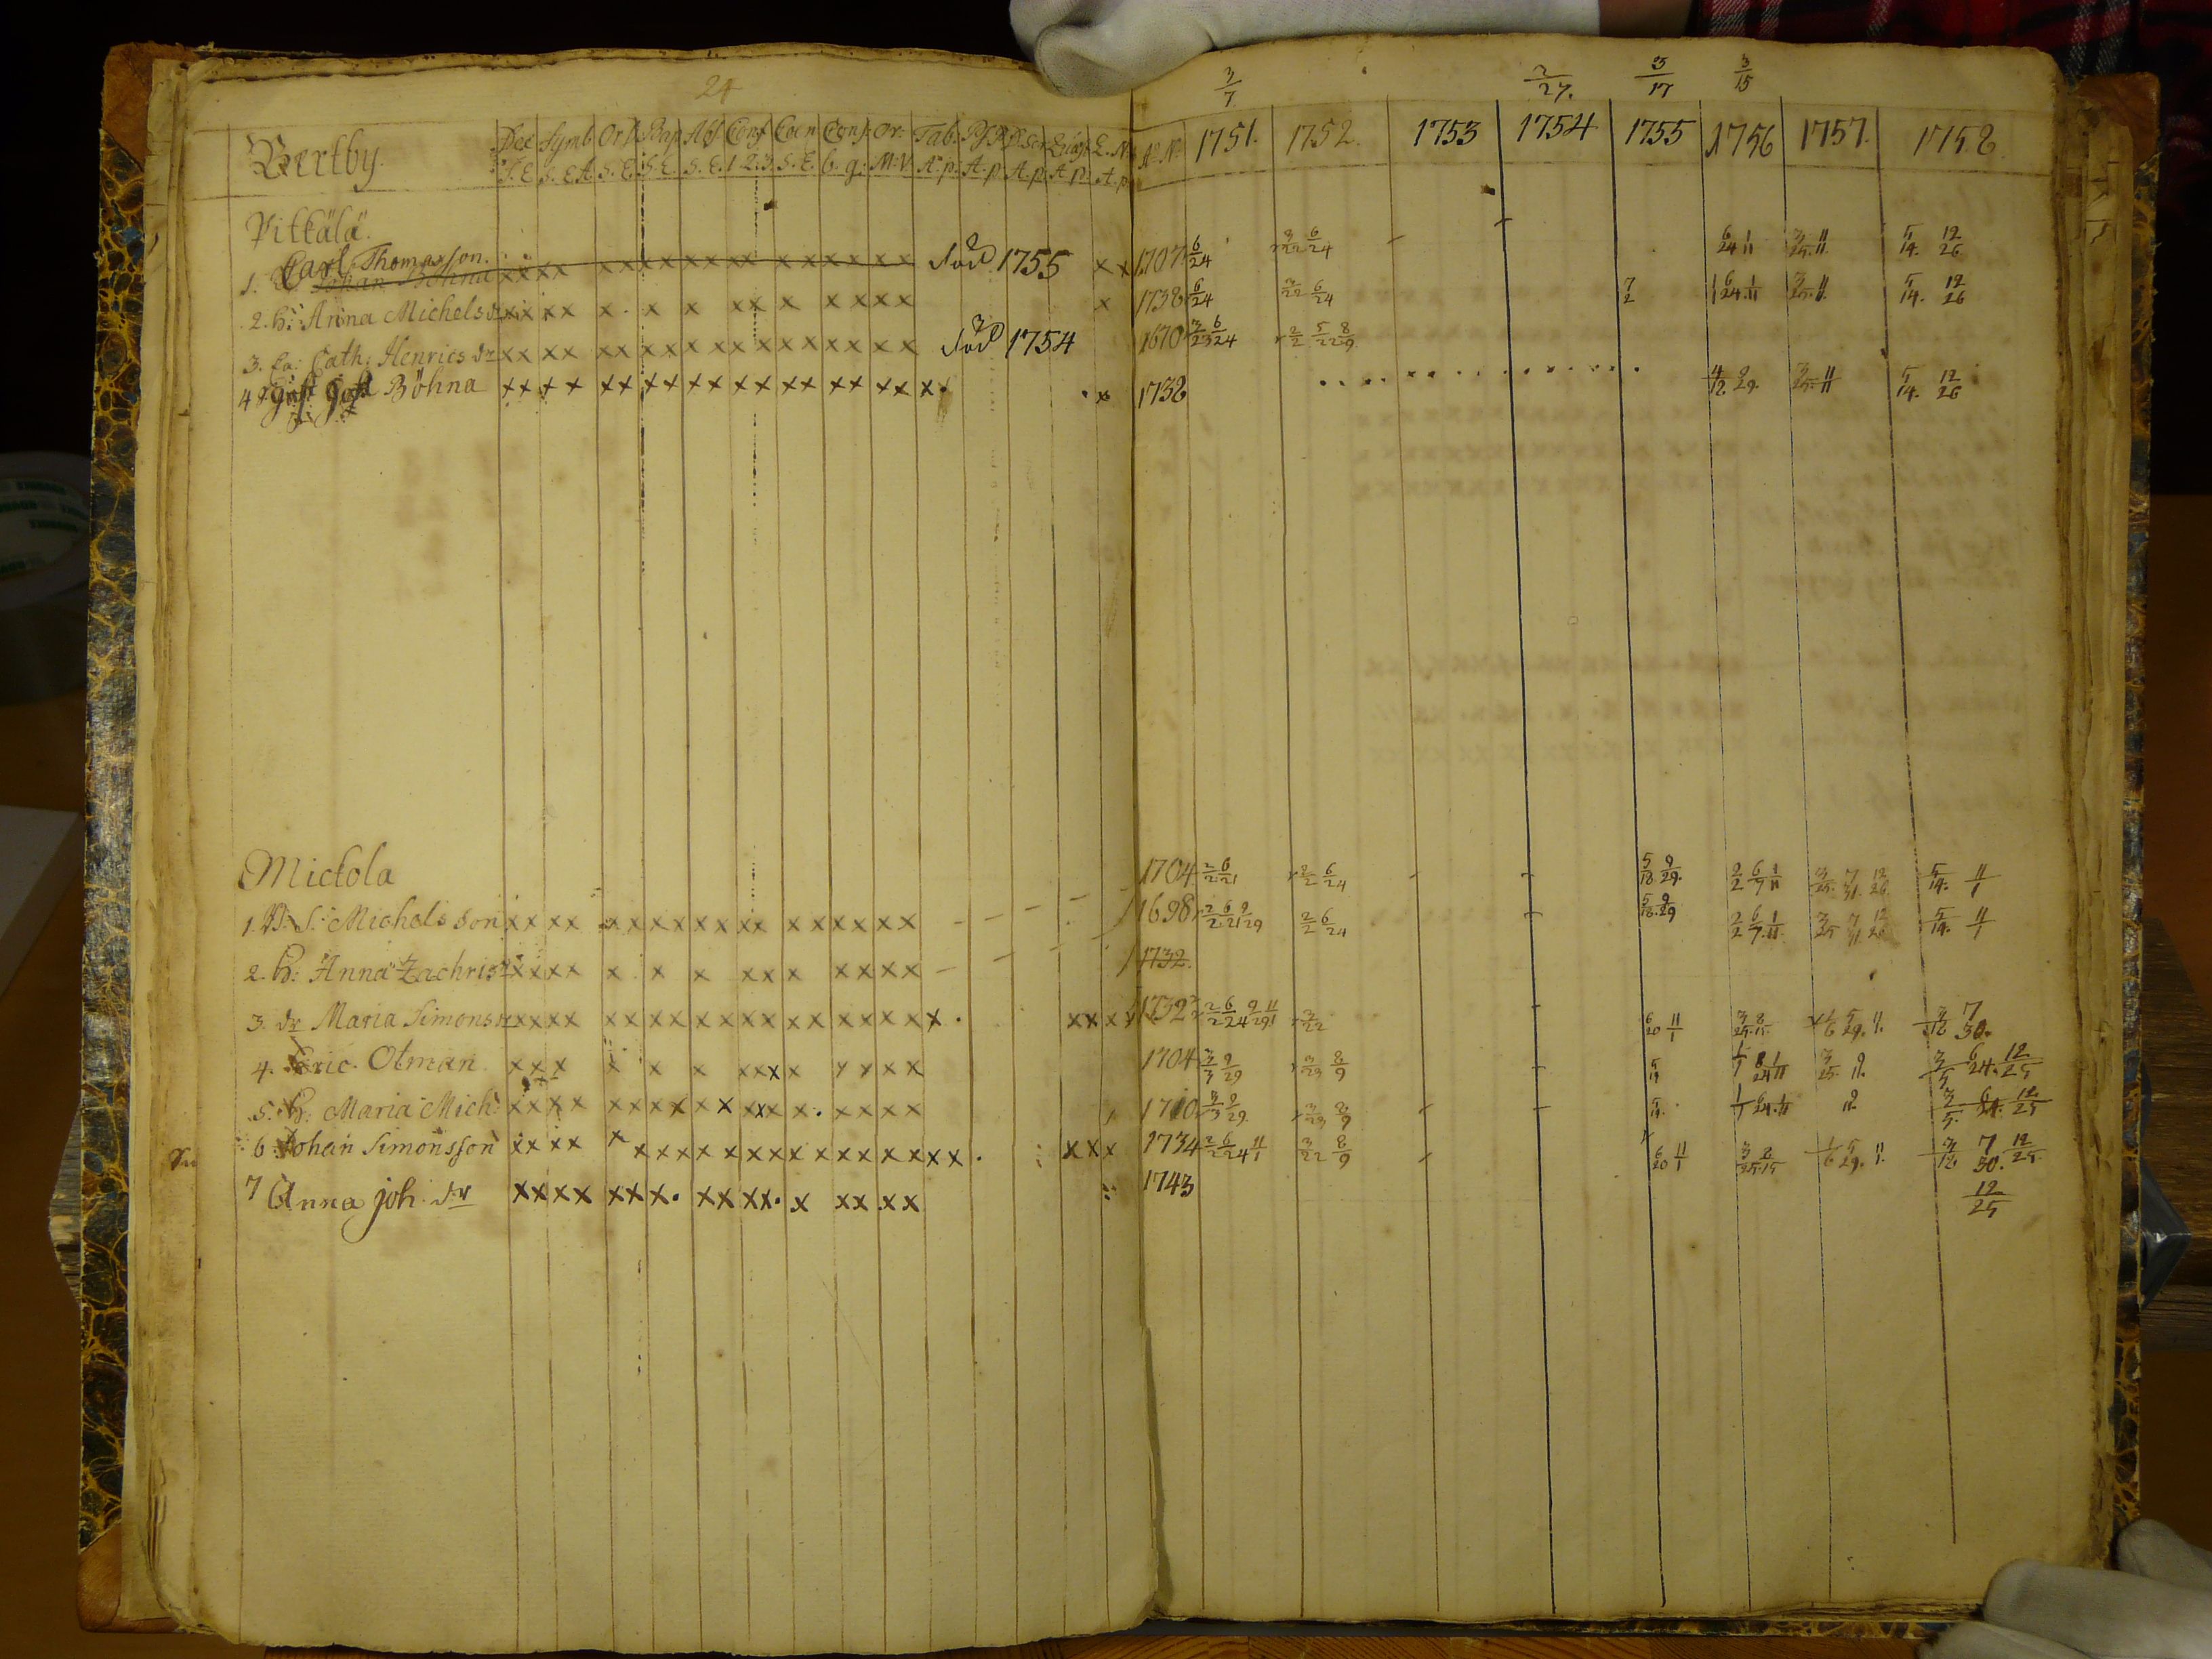 24
3/7 2/27. 25/17 3/15
Bertby. Dec Symb Or Bap Abs Conf Coen Conf Or: Tab. E. N. 1751. 1752. 1753 1754 1755 1756 1757. 1758
S. E. S. E A. S. E. S. E. S. E. 1 2 3. S. E. b. g: M: V. A. p. A. p. A. p. A. p. A. p.
Pitkälä.
Carl Thomasson.
1. Johan Böhna xx xx xx xx xx xx x x x x x x död 1755 x x 1707 6/24 3/22 6/24 - - 6/24 1/11 3/25. 11/11. 5/14. 12/26
2. h: Anna Michelsdr xx xx x . x x xx x x x x x x 1738 6/24 3/22 6/24 7/2 6/24. 1/11 3/25. 11/11. 5/14. 12/26
3. Cath: Henricsdr xx xx xx xx xx xx xx xx xx död 1754 1670 3/23 6/24 2/2 5/22 8/9
4 Gust Böhna xx xx xx xx xx xx xx xx xx x. . x 1738 . . . . . . . . . . . . . 4/12 9/29. 3/25. 11/11 5/14. 12/26
Mickola 1704 2/2 6/21 2/2 6/24 - - 5/18 9/29. 2/2 6/7 1/11 3/25. 7/31. 12/26. 5/14. 11/1
1. S: Michelsson xx xx xx xx xx xx xx xx xx 1698 2/2 6/21 9/29 2/2 6/24 - 5/18. 9/29 2/2 6/7. 1/11. 3/25 7/31. 12/26 5/14. 11/1
2. h: Anna Zachrisdr xx xx x x x xx x x x x x 1732.
3. dr Maria Simonsdr xx xx xx xx xx xx xx xx xx x. xx x x 1732 2/2 6/24 9/29 11/1 3/22 - 6/20 11/1 3/25. 8/15. 1/6 5/29. 11. 3/12 7/30.
4. Eric Otman. x x x x x x xx x x x x x x 1704 3/3 9/29 3/23 8/9 5/19 1/1 6/24 1/11 3/25. 9/11. 3/5 6/24. 12/25
5. h: Maria Mich: xx xx xx xx xx xx x. xx xx 1710 3/3 9/29. 3/23 8/9 - - 5/19. 1/1 6/24. 1/11 9/11. 3/5. 6/24. 12/25
6. Johan Simonsson xx xx x xx xx xx xx xx xx xx xx. xx x 1734 2/2 6/24 11/1 3/22 8/9 - 6/20 11/1 3/25. 8/15 1/6 5/29. 11. 3/12. 7/30. 12/25.
7 Anna joh. dr xx xx xx x. xx xx. x xx xx 1743 12/25